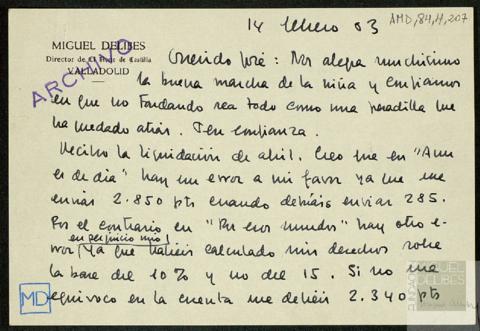 14 febrero 63
AMD,84,4,207
MIGUEL DELIBES
Director de El Norte de Castilla
VALLADOLID
ARCHIVO
Querido José: Nos alegra muchísimo
la buena marcha de la niña y confiamos
en que no tardando sea todo como una pesadilla que
ha quedado atrás. Ten confianza.
Recibo la liquidación de abril. Creo que en "Aun
es de día" hay un error a mi favor ya que me
envias 2.850 pts cuando debíais enviar 285.
Por el contrario en "Por esos mundos" hay otro e-
en perjuicio mío!
rror, ya que habéis calculado mis derechos sobre
la base del 10% y no del 15. Si no me
equivoco en la cuenta me debéis 2.340 pts
MD
FUNDACIÓN
MIGUEL
DELIBES